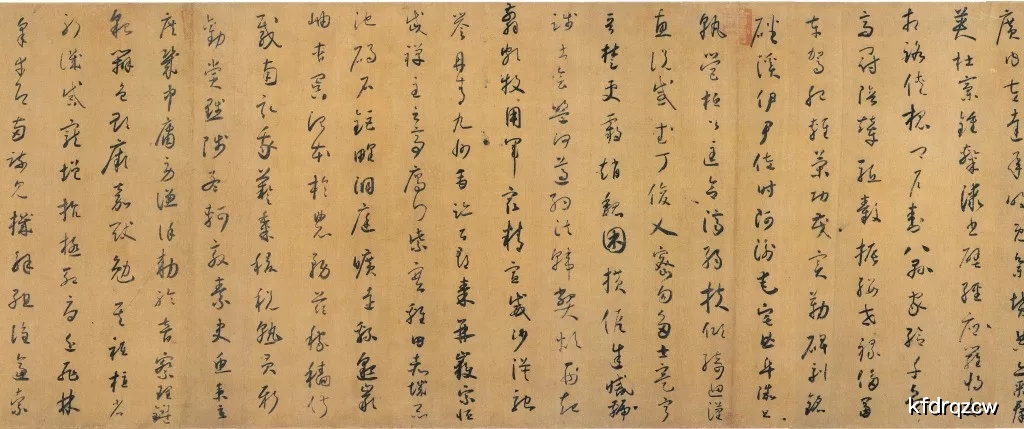 廣內左達承明既集墳典亦聚群
英杜稾鍾隸漆書壁經府羅將
相路俠槐卿戶封八縣家給千兵
高冠陪輦驅轂振纓世祿侈富
車駕肥輕策功茂實勒碑刻銘
磻溪伊尹佐時阿衡奄宅曲阜微旦
孰營桓公匡合濟弱扶傾綺迴漢
惠說感武丁俊乂密勿多士寔寧
晉楚更霸趙魏困橫假途滅虢
踐土會盟何遵約法韓弊煩刑起
翦頗牧用軍最精宣威沙漠馳
譽丹青九州禹跡百郡秦并嶽宗恆
岱禪主云亭雁門紫塞雞田赤城昆
池碣石鉅野洞庭曠遠緜邈巖
岫杳冥治本於農務茲稼穡俶
載南畝我藝黍稷稅熟貢新
勸賞黜陟孟軻敦素史魚秉直
庶幾中庸勞謙謹敕聆音察理鑑
貌辨色貽厥嘉猷勉其祗植省
躬譏誡寵增抗極殆辱近恥林
皋幸即兩疏見機解組誰逼索
kfdrqzcw